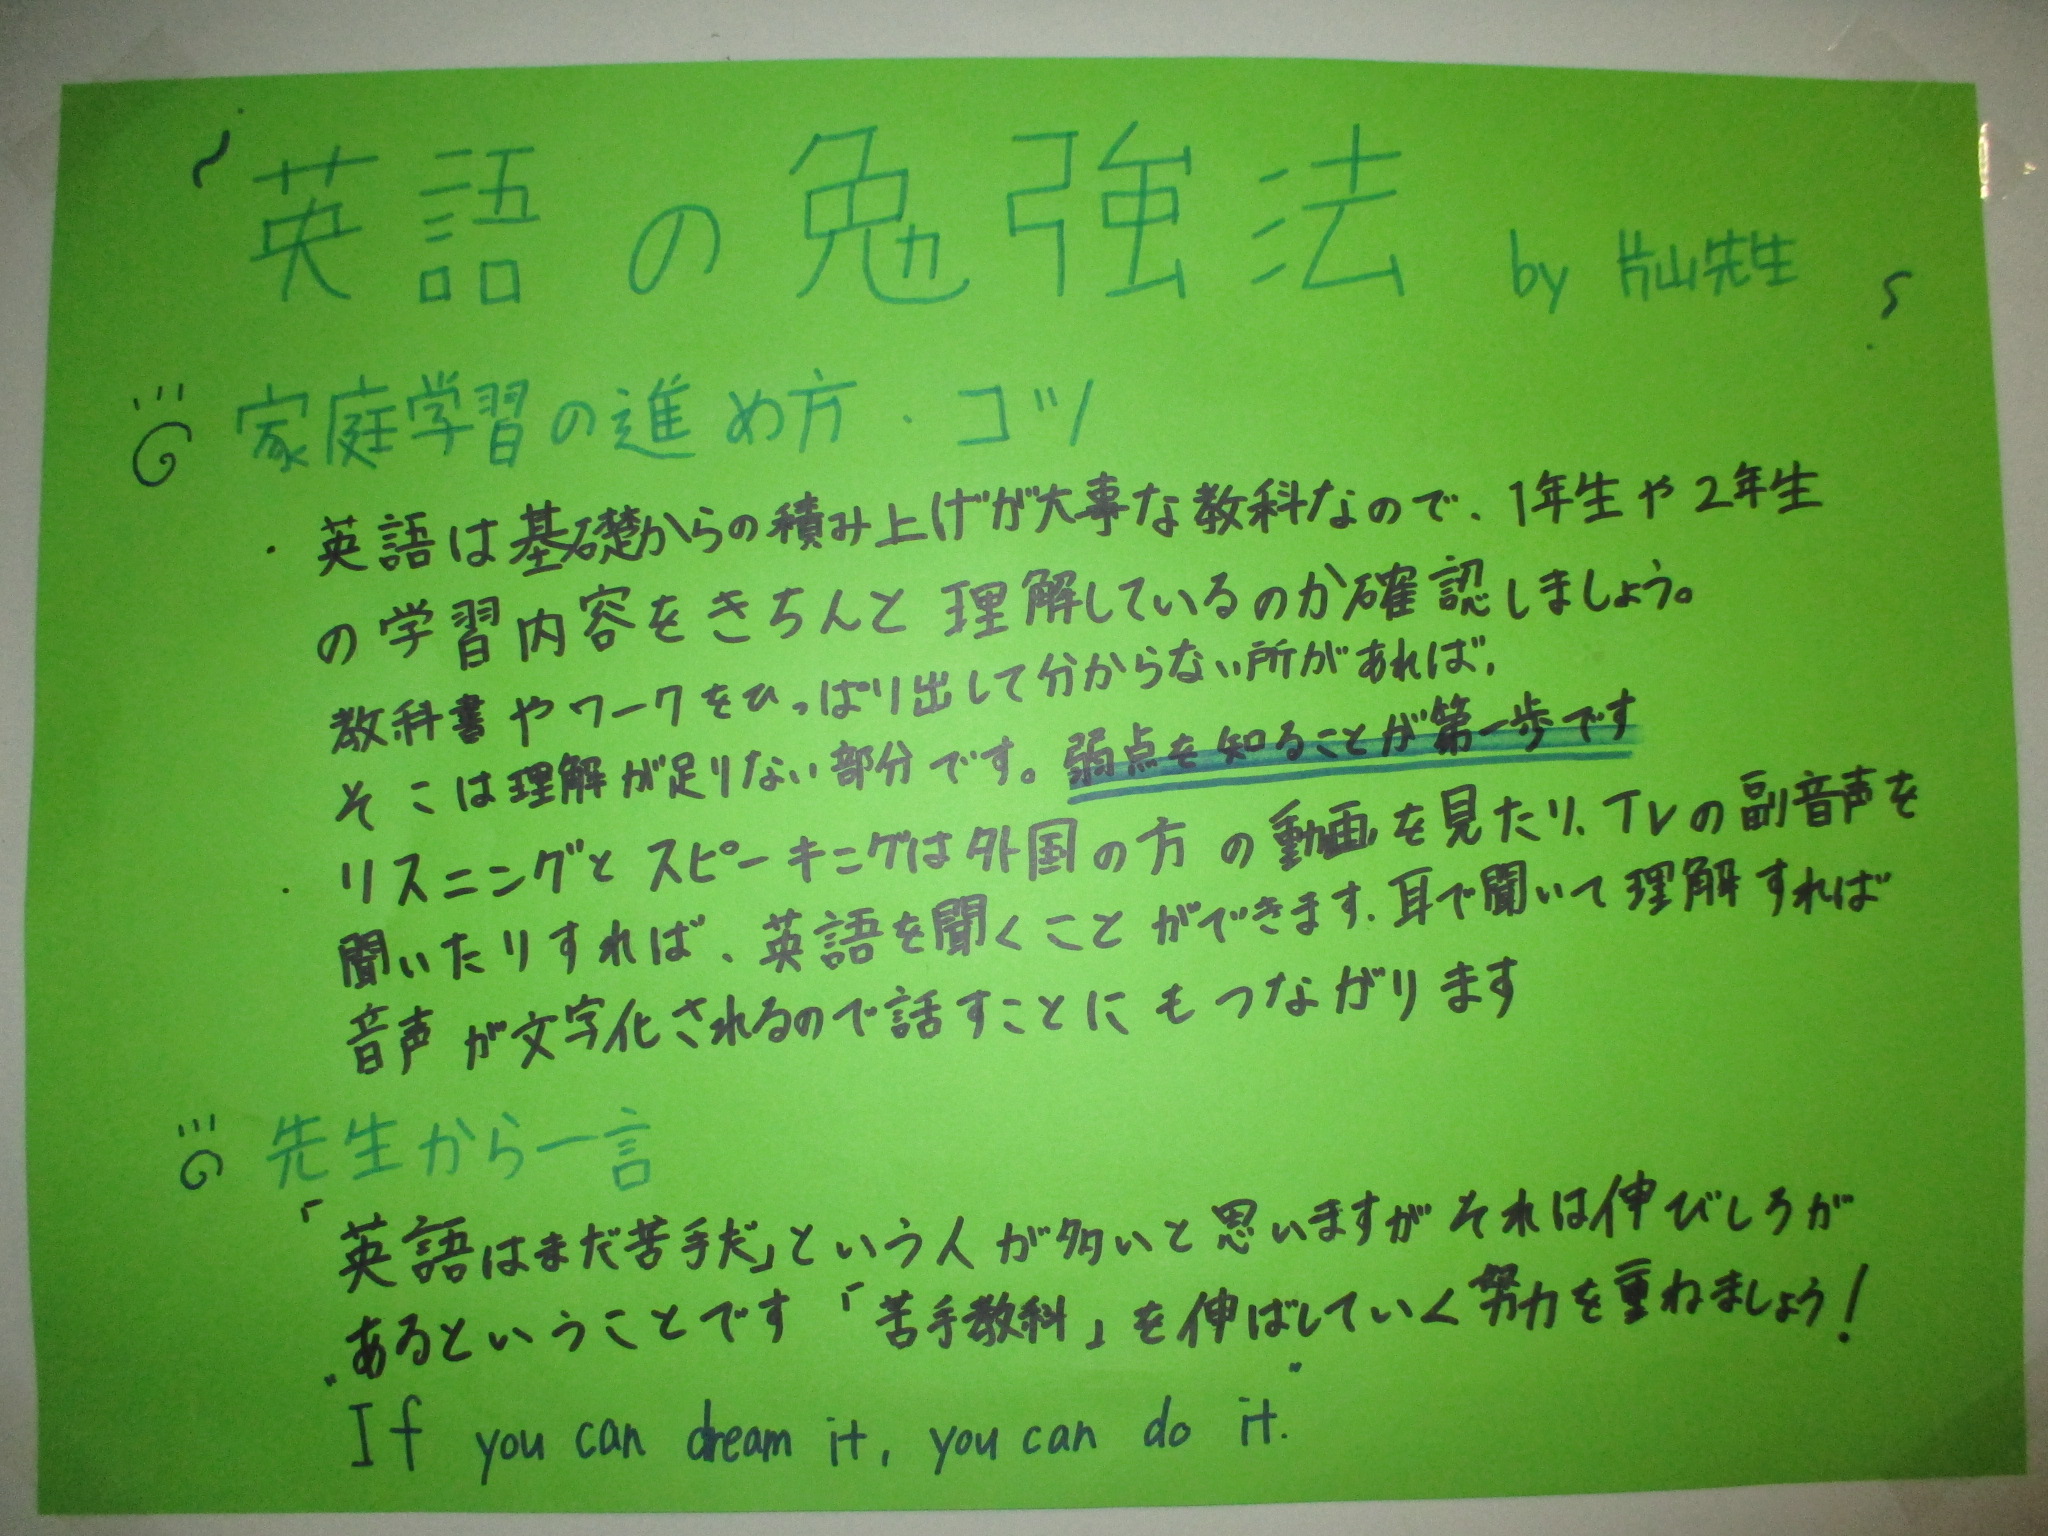 ～英語の勉強法 by 片山先生～
家庭学習の進め方・コツ
・英語は基礎からの積み上げが大事な教科なので、1年生や2年生
の学習内容をきちんと理解しているのか確認しましょう。
教科書やワークをひっぱり出して分からない所があれば、
そこは理解が足りない部分です。弱点を知ることが第一歩です
・リスニングとスピーキングは外国の方の動画を見たり、TVの副音声を
聞いたりすれば、英語を聞くことができます。耳で聞いて理解すれば
音声が文字化されるので話すことにもつながります
先生から一言
「英語はまだ苦手だ」という人が多いと思いますがそれは伸びしろが
あるということです「苦手教科」を伸ばしていく努力を重ねましょう!
"If you can dream it, you can do it."